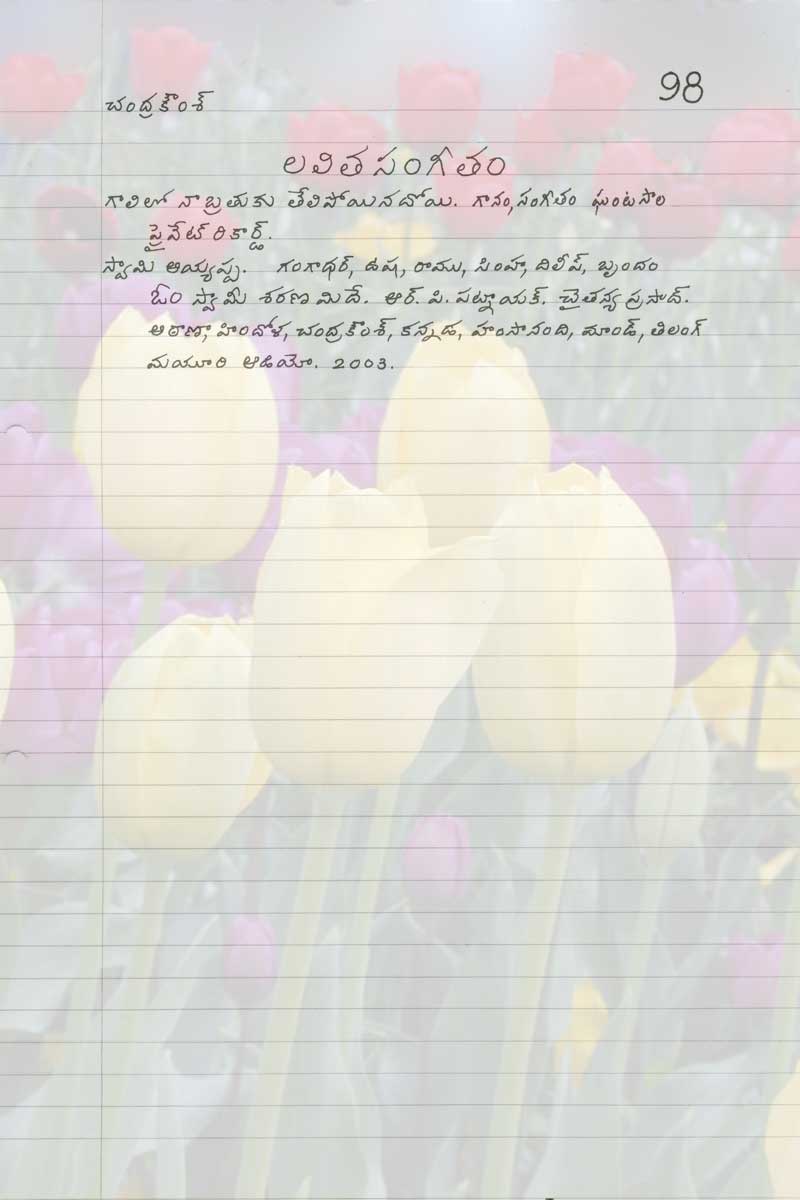 చంద్రకౌంశ్
98
లలిత సంగీతం
గాలిలో నా బ్రతుకు తేలిపోయినదోయి. గానం, సంగీతం ఘంటసాల
ప్రైవేట్ రికార్డ్.
స్వామి అయ్యప్ప. గంగాధర్, ఉష, రాము, సింహా, దిలీప్, బృందం
ఓం స్వామి శరణమిదే. ఆర్. పి. పట్నాయక్. చైతన్య ప్రసాద్.
అఠాణా, హిందోళ, చంద్రకౌంశ్, కన్నడ, హంసానంది, మాండ్, తిలంగ్
మయూరి ఆడియో. 2003.